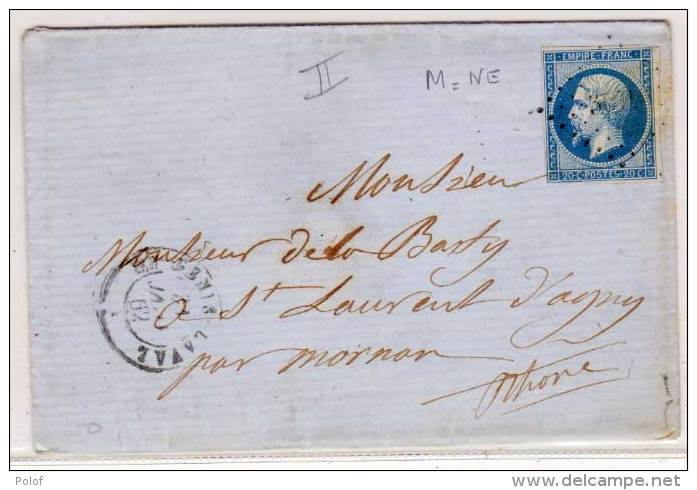 II
M = NE
EMPIRE · FRANC ·
20 · C · POSTES · 20 · C
Monsieur
Monsieur de la Basty
a St Laurent d'agny
par mornan
Rhone
LAVAL
62
Polof
www.delcampe.net